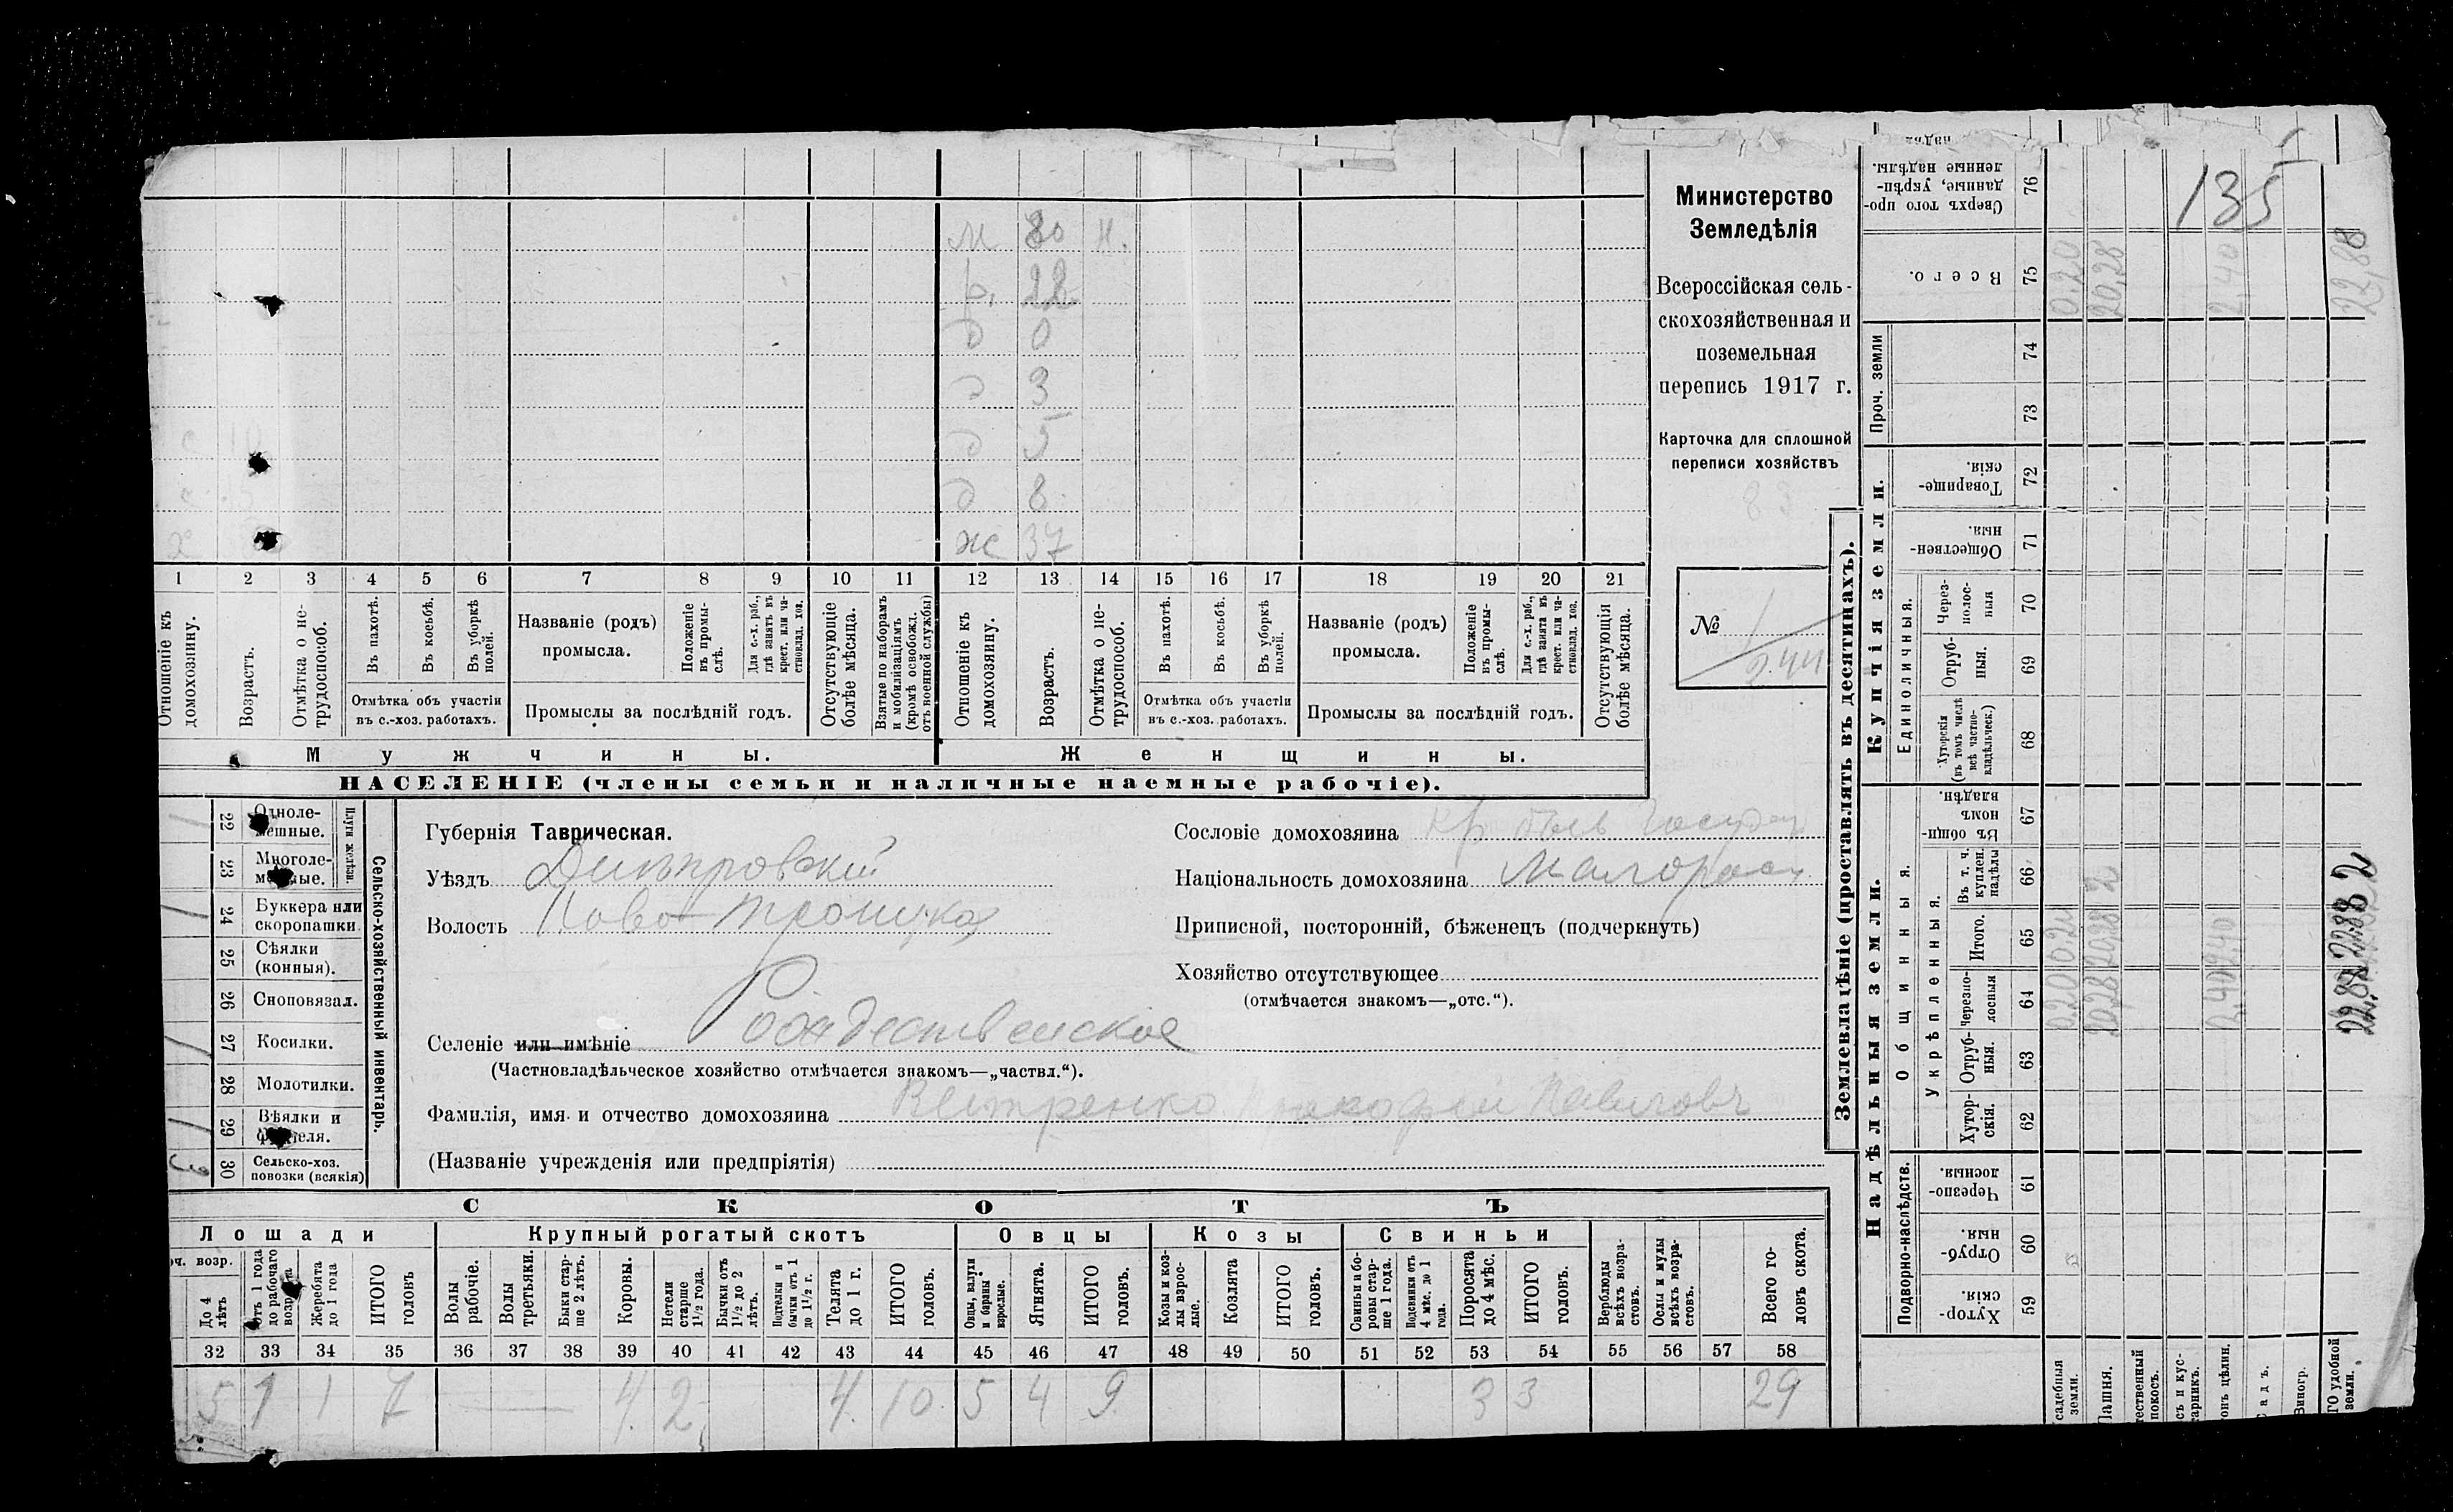 м 80 н.
22
д 0
д 3
д 5
д 8
ж 37
1 2 3 4 5 6 7 8 9 10 11 12 13 14 15 16 17 18 19 20 21
Отношеніе къ домохозяину.
Возрастъ.
Отмѣтка о не-
трудоспособ.
Въ пахотѣ.
Въ косьбѣ.
Въ уборкѣ полей.
Отмѣтка объ участіи
въ с.-хоз. работахъ.
Названіе (родъ)
промысла.
Положеніе
въ промы-
слѣ.
Для с.-х. раб.,
гдѣ занятъ въ
крест. или ча-
стновлад. хоз.
Промыслы за послѣдній годъ.
Отсутствующіе
болѣе мѣсяца.
Взятые по наборамъ
и мобилизаціямъ
(кромѣ освобожд.
отъ военной службы)
Отношеніе къ
домохозяину.
Возрастъ.
Отмѣтка о не-
трудоспособ.
Въ пахотѣ.
Въ косьбѣ.
Въ уборкѣ
полей.
Отмѣтка объ участіи
въ с.-хоз. работахъ.
Названіе (родъ)
промысла.
Положеніе
въ промы-
слѣ.
Для с.-х. раб.,
гдѣ занята въ
крест. или ча-
стновлад. хоз.
Промыслы за послѣдній годъ.
Отсутствующія
болѣе мѣсяца.
Мужчины.
Женщины.
НАСЕЛЕНІЕ (члены семьи и наличные наемные рабочіе).
Министерство
Земледѣлія
Всероссійская сель-
скохозяйственная и
поземельная
перепись 1917 г.
Карточка для сплошной
переписи хозяйствъ
83
№ 1
244
22 Одноле-
мешные.
23 Многоле-
мешные.
Плуги желѣзн.
24 Буккера или
скоропашки.
25 Сѣялки
(конныя).
26 Сноповязал.
27 Косилки.
28 Молотилки.
29 Вѣялки и
30 Сельско-хоз.
повозки (всякія)
Сельско-хозяйственный инвентарь.
1
1
1
1
3
Губернія Таврическая.
Уѣздъ Днѣпровскій
Волость Ново-Троицкая
Селеніе или имѣніе Рождественское
(Частновладѣльческое хозяйство отмѣчается знакомъ—„частвл.“).
Фамилія, имя и отчество домохозяина Ветренко Прокофій Павловъ
(Названіе учрежденія или предпріятія)
Сословіе домохозяина кр. бывъ Госуд
Національность домохозяина Малоросс
Приписной, посторонній, бѣженецъ (подчеркнуть)
Хозяйство отсутствующее
(отмѣчается знакомъ—„отс.“).
СКОТЪ
Лошади
Крупный рогатый скотъ
Овцы
Козы
Свиньи
оч. возр.
До 4
лѣтъ
Отъ 1 года
до рабочаго
Жеребята
до 1 года
ИТОГО
головъ
Волы
рабочіе.
Волы
третьяки.
Быки стар-
ше 2 лѣтъ.
Коровы.
Нетели
старше
1½ года.
Бычки отъ
1½ до 2
лѣтъ.
Подтелки и
бычки отъ 1
до 1½ г.
Телята
до 1 г.
ИТОГО
головъ.
Овцы, валухи
и бараны
взрослые.
Ягнята.
ИТОГО
головъ.
Козы и коз-
лы взрос-
лые.
Козлята
ИТОГО
головъ.
Свиньи и бо-
ровы стар-
ше 1 года.
Подсвинки отъ
4 мѣс. до 1
года.
Поросята
до 4 мѣс.
ИТОГО
головъ.
Верблюды
всѣхъ возра-
стовъ.
Ослы и мулы
всѣхъ возра-
стовъ.
Всего го-
ловъ скота.
32 33 34 35 36 37 38 39 40 41 42 43 44 45 46 47 48 49 50 51 52 53 54 55 56 57 58
5 1 1 7 4 2 4 10 5 4 9 3 3 29
Землевладѣніе (проставлять въ десятинахъ).
Надѣльныя земли.
Купчія земли.
Проч. земли
Подворно-наслѣдств.
Общинныя.
Укрѣпленныя.
Единоличныя.
Хутор-
скія.
59
Отруб-
ныя.
60
Черезпо-
лосныя.
61
Хутор-
скія.
62
Отруб-
ныя.
63
Черезпо-
лосныя
64
Итого.
65
Въ т. ч.
куплен.
надѣлы
66
Въ общи-
номъ
владѣн.
67
Хуторскія
(въ томъ числѣ
всѣ частно-
владѣльческ.)
68
Отруб-
ныя.
69
Через-
полос-
ныя
70
Обществен-
ныя
71
Товарище-
скія.
72
73
74
Всего.
75
Сверхъ того про-
данные, укрѣп-
ленные надѣлы.
76
135
садебныя
земли.
0,20 0,20
0,20
Пашня.
20,28 20,28
20,28
тественный
покосъ.
съ и кус-
тарникъ.
онъ цѣлин.
2,40 2,40
2,40
Садъ.
Виногр.
ГО удобной
земли.
22,88 22,88
22,88